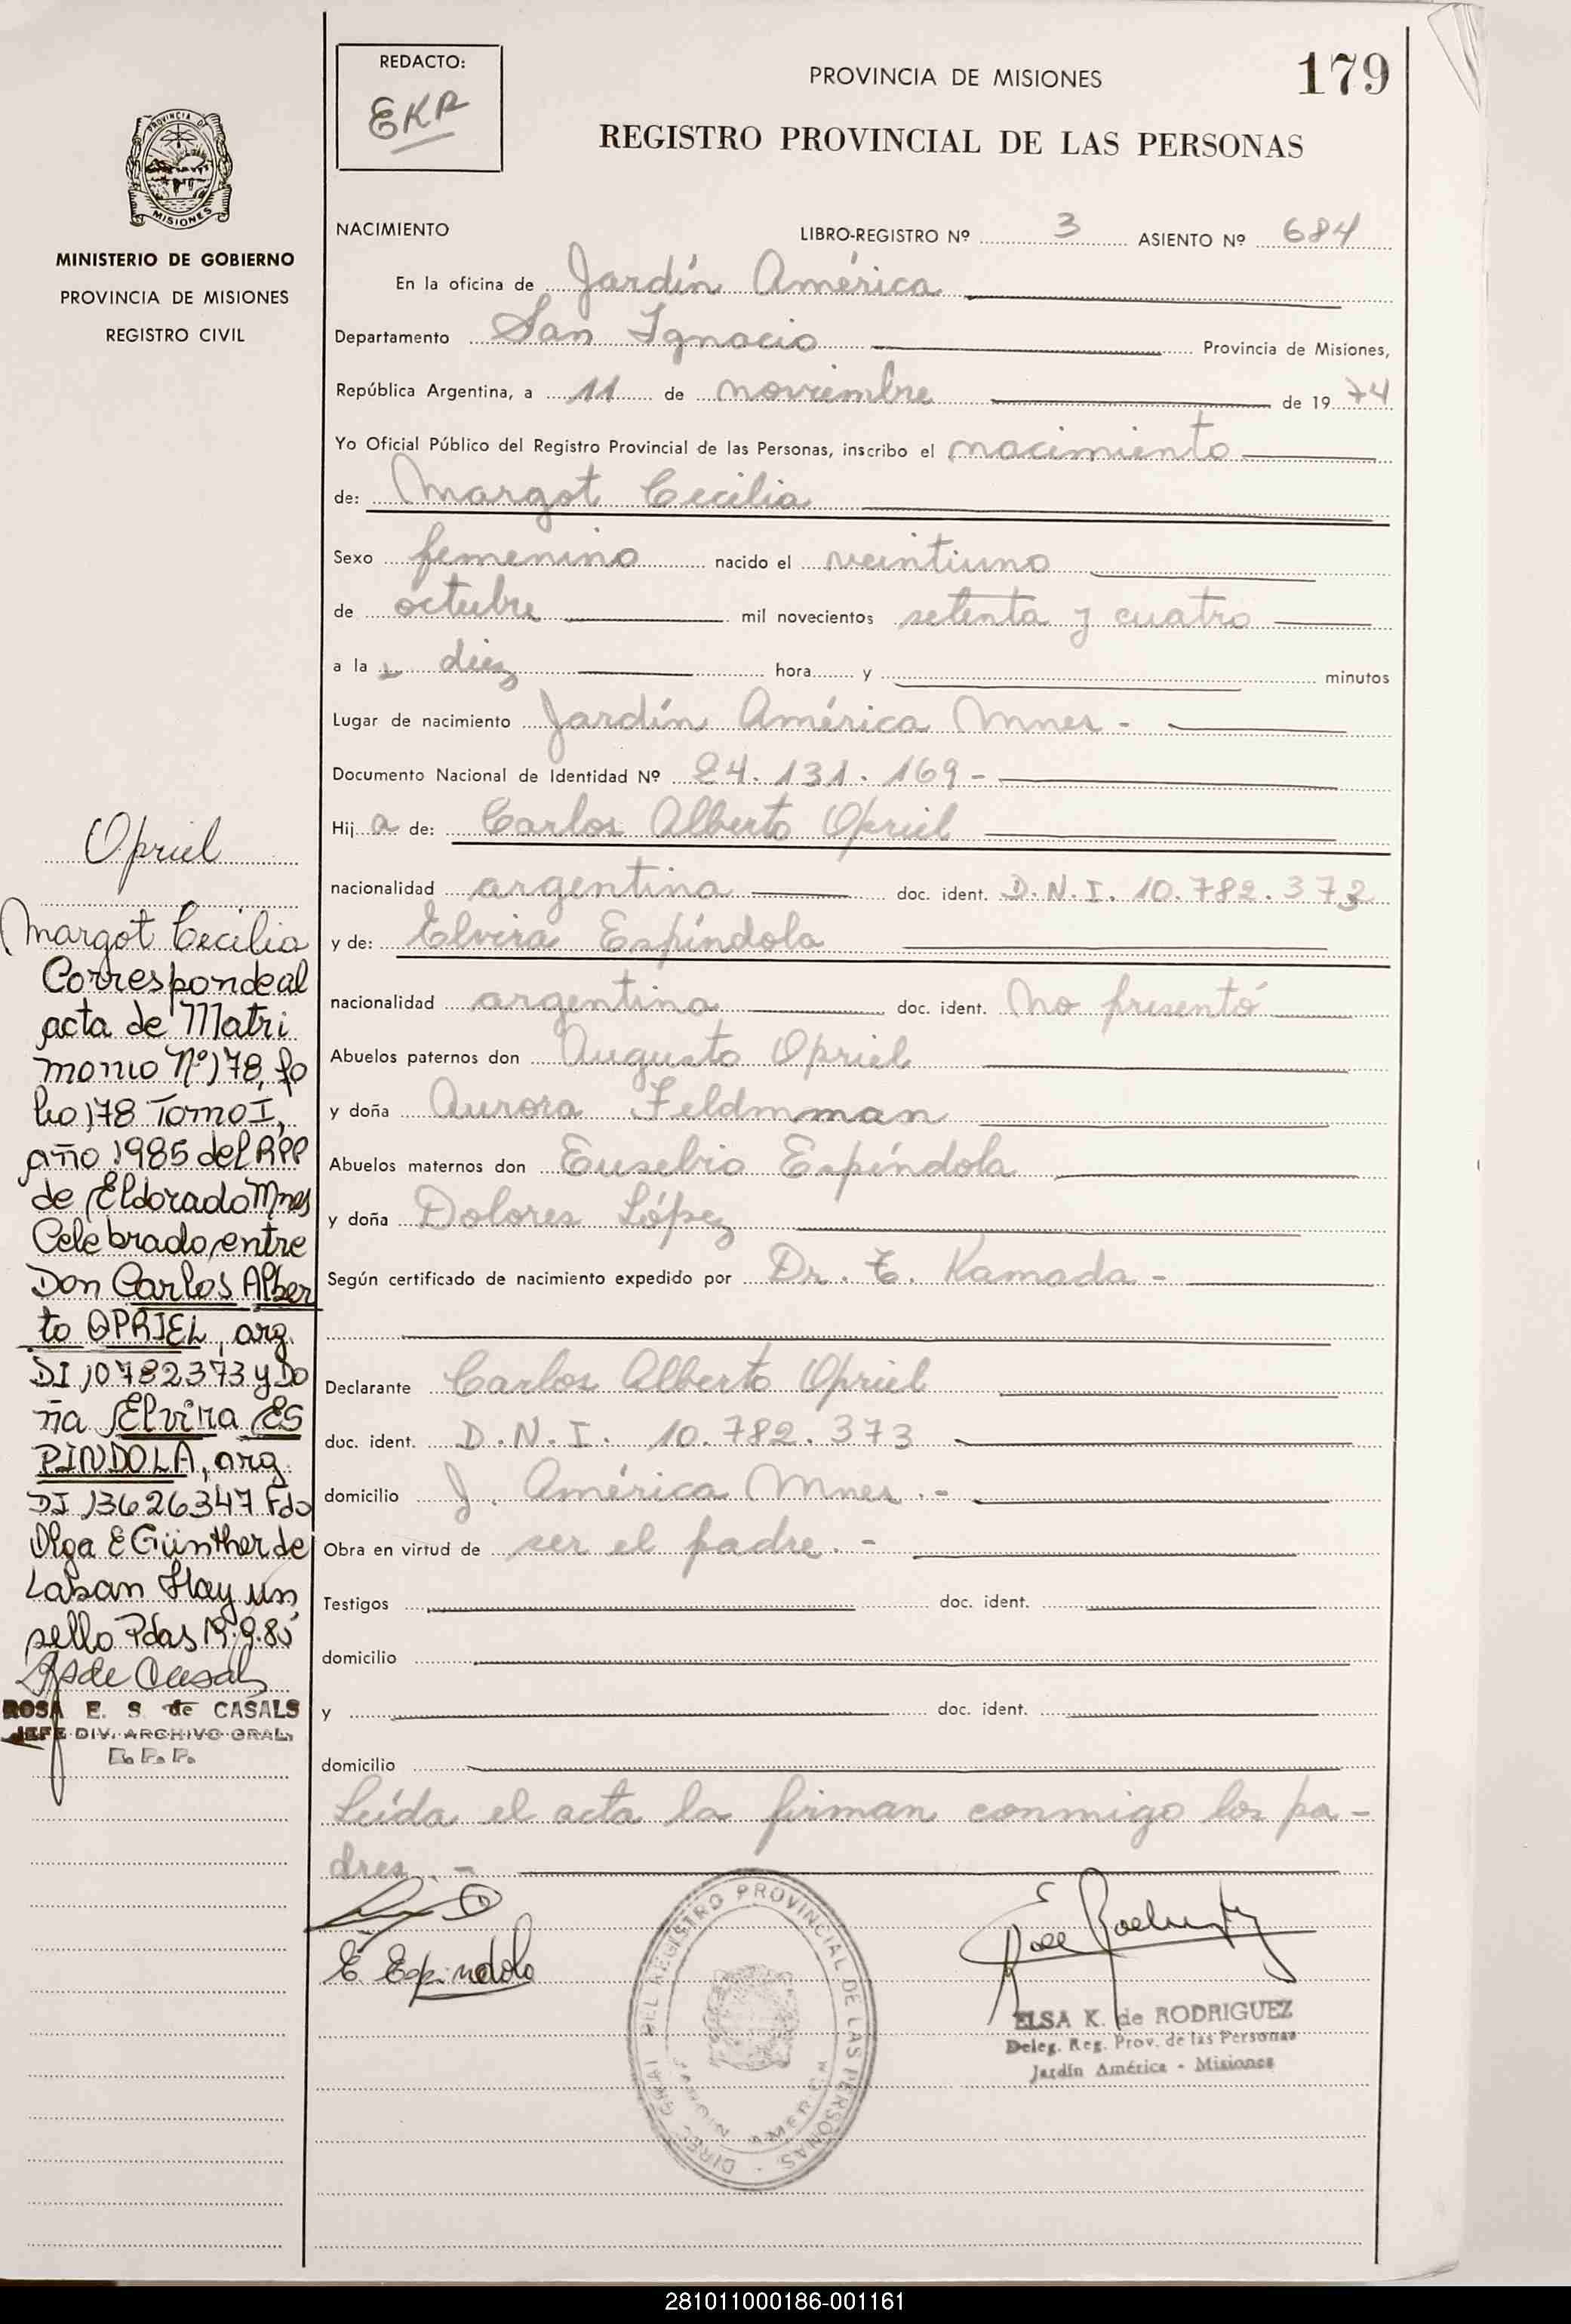 REDACTO:
EKR
PROVINCIA DE MISIONES
179
REGISTRO PROVINCIAL DE LAS PERSONAS
PROVINCIA DE
MISIONES
MINISTERIO DE GOBIERNO
PROVINCIA DE MISIONES
REGISTRO CIVIL
NACIMIENTO
LIBRO-REGISTRO Nº 3 ASIENTO Nº 684
En la oficina de Jardín América
Departamento San Ignacio Provincia de Misiones,
República Argentina, a 11 de noviembre de 19 74
Yo Oficial Público del Registro Provincial de las Personas, inscribo el nacimiento
de: Margot Cecilia
Sexo femenino nacido el veintiuno
de octubre mil novecientos setenta y cuatro
a la s diez hora y minutos
Lugar de nacimiento Jardín América Mnes -
Documento Nacional de Identidad Nº 24.131.169-
Hij a de: Carlos Alberto Opriel
nacionalidad argentina doc. ident. D.N.I. 10.782.373
y de: Elvira Espíndola
nacionalidad argentina doc. ident. no presentó
Abuelos paternos don Augusto Opriel
y doña Aurora Feldmman
Abuelos maternos don Eusebio Espíndola
y doña Dolores López
Según certificado de nacimiento expedido por Dr. T. Kamada -
Declarante Carlos Alberto Opriel
doc. ident. D.N.I. 10.782.373
domicilio J. América Mnes .-
Obra en virtud de ser el padre.-
Testigos doc. ident.
domicilio
y doc. ident.
domicilio
Leída el acta la firman conmigo los pa-
dres.-
E Espindola
DIREC GRAL DEL REGISTRO PROVINCIAL DE LAS PERSONAS -
JARDIN AMERICA
ELSA K. de RODRIGUEZ
Deleg. Reg. Prov. de las Personas
Jardín América - Misiones
Opriel
Margot Cecilia
Corresponde al
acta de Matri
monio Nº 178, fo
lio 178 Tomo I,
año 1985 del RPP
de Eldorado Mnes
Celebrado entre
Don Carlos Alber
to OPRIEL, arg.
DI 10782373 y Do
ña Elvira ES
PINDOLA, arg.
DI 13626347 Fdo
Olga E Günther de
Laban Hay un
sello Pdas 19.9.85
R S de Casals
ROSA E. S de CASALS
JEFE DIV. ARCHIVO GRAL.
R.P.P.
281011000186-001161